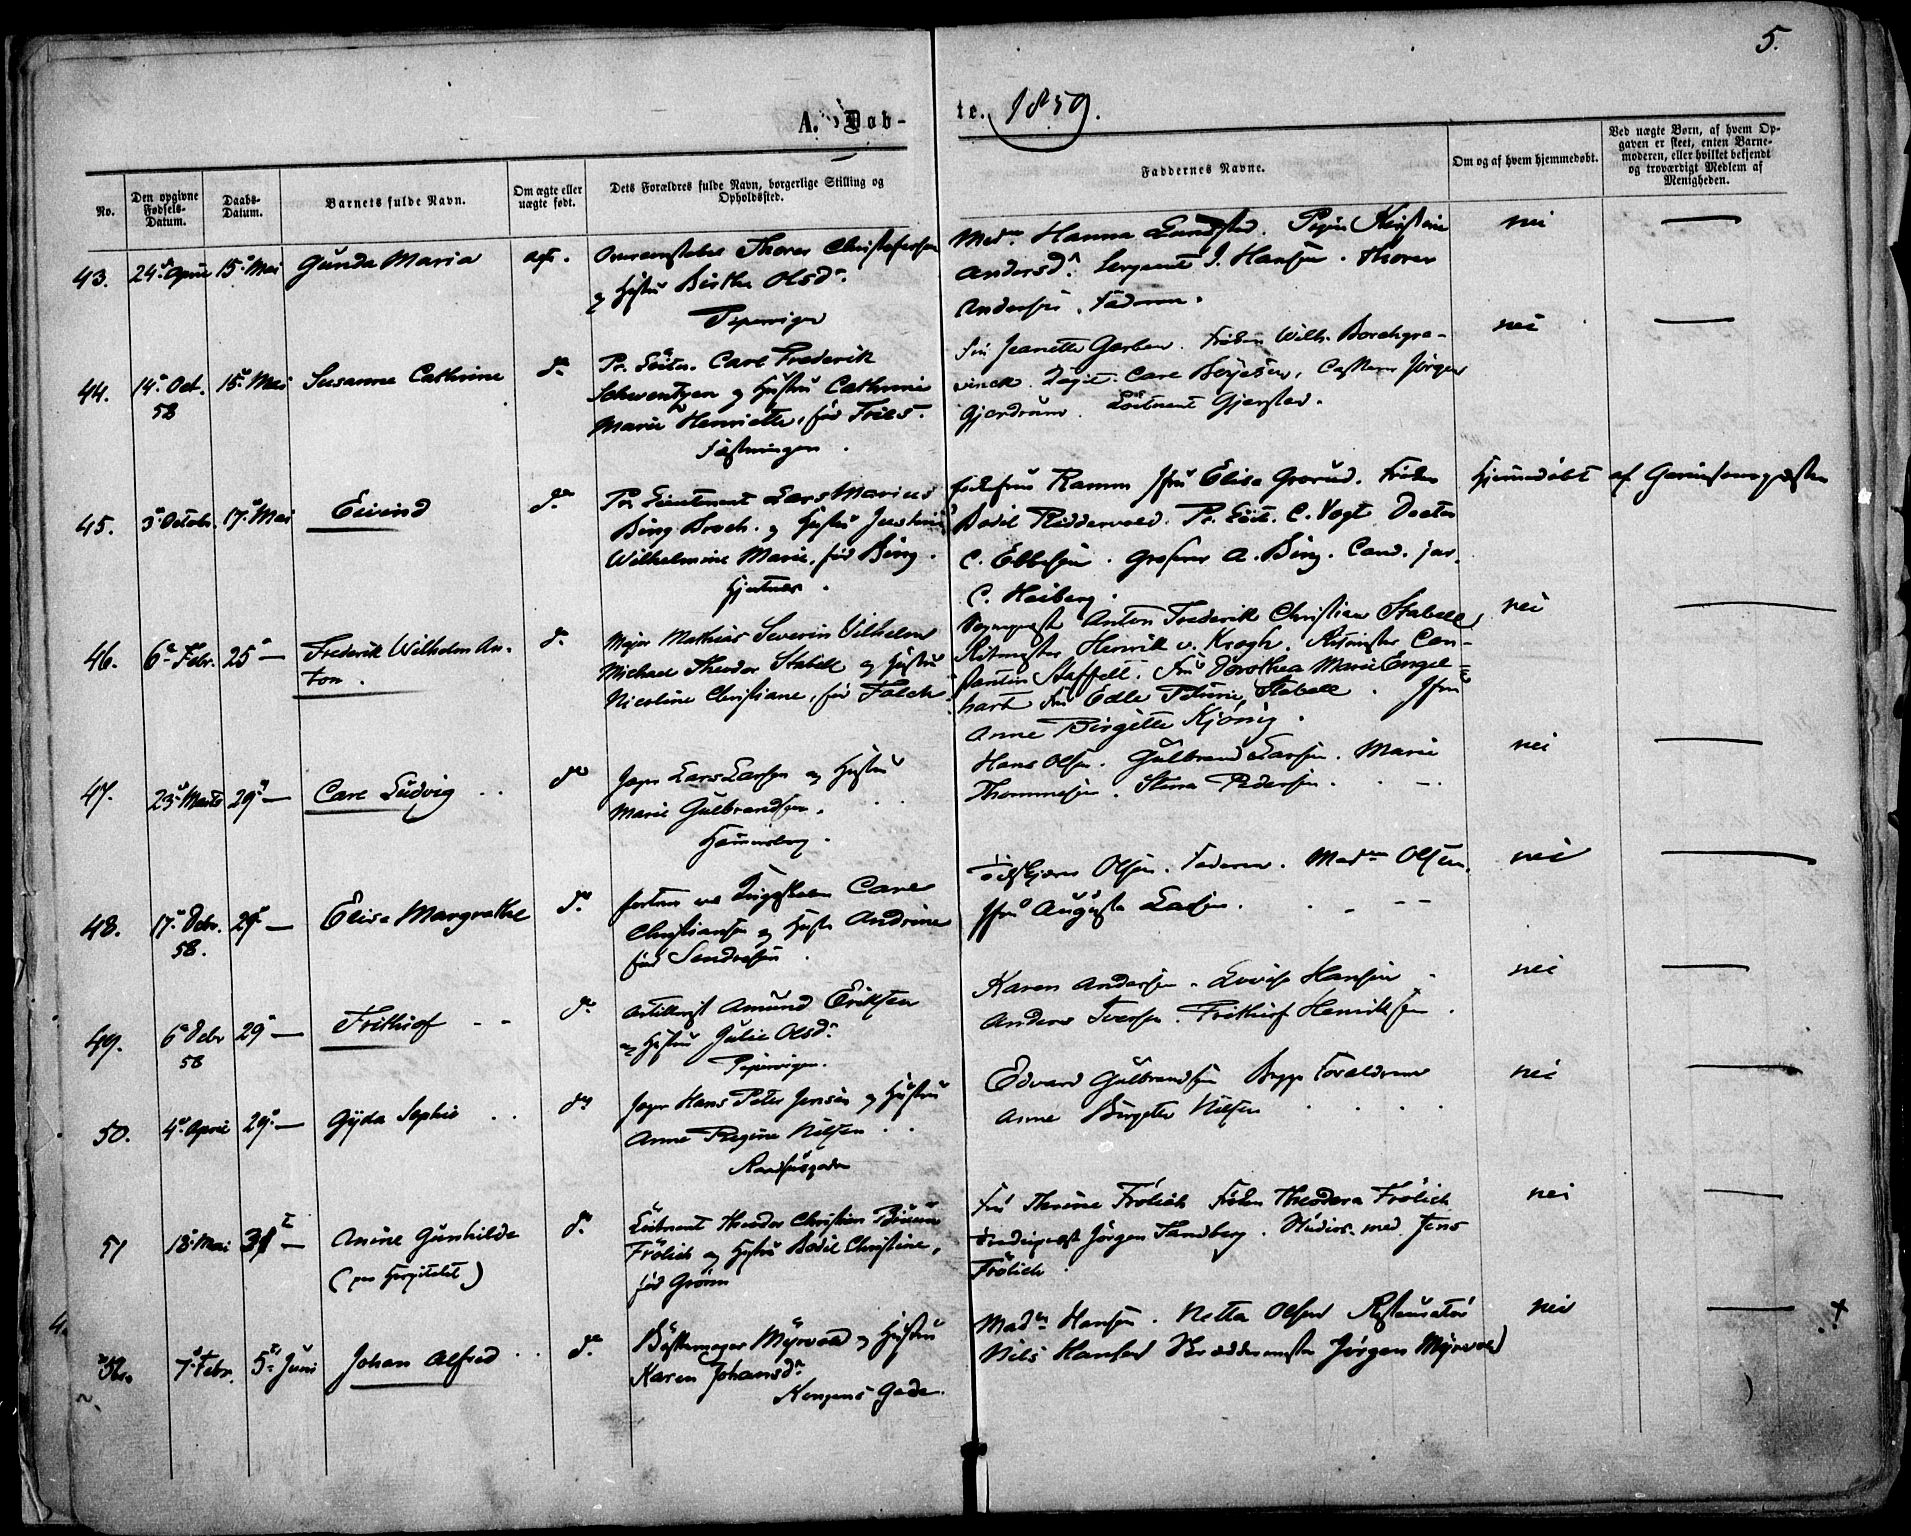 5.
A. Døb-
te. 1859.
No.
Den opgivne Fødsels-Datum.
Daabs-Datum.
Barnets fulde Navn.
Om ægte eller uægte født.
Dets Forældres fulde Navn, borgerlige Stilling og Opholdssted.
Faddernes Navne.
Om og af hvem hjemmedøbt.
Ved uægte Børn, af hvem Op-
gaven er skeet, enten Barne-
moderen, eller hvilket bekjendt
og troværdigt Medlem af
Menigheden.
43. 24d April 15d Mai Gunda Maria ægt.
Thores Christofersen
og Hustru Birthe Olsdr.
Pipervigen
Madm. Hanna Lundsted. Pigen Kirstine
Andersdr. Sergeant J. Hansen. Thorer
Andersen. Faderen.
nei —
44. 14d Oct. 58 15d Mai Susanne Cathrine do
Pr. Löitn. Carl Frederik
Schwentzen og Hustru Cathrine
Marie Henriette, fød Fries.
Fæstningen.
Fru Jeanette Gerben. Frøken Wilh. Borchgre-
vinck. Capit. Carl Börjesen, Jørgen
Gjerdrum. Löitnant Gjersted.
nei —
45. 3d Octob. 17d Mai Eivind do
Pr. Lieutenant Lars Marius
Bing Broch. og Hustru Justine
Wilhelmine Marie, fød Bing.
Ramm Jfru Elise Grorud. Frøken
Bodil Riddervold. Pr. Löit. C. Vogt Doctor
C. Ebbesen. Grosserer A. Bing. Cand. jur.
C. Heiberg.
Hjemmedøbt af Garnisonspræsten
46. 6d Febr. 25d — Frederik Wilhelm An-
ton.
do
Major Mathias Severin Vilhelm
Michael Theodor Stabell og Hustru
Nicoline Christiane, fød Falch.
Sognepræst Anton Frederik Christian Stabell
Ritmester Henrik v. Krogh. Ritmester Con-
stantin Staffelt. Fru Dorothea Marie Engel-
hart Fru Edle Petrine Stabell. Jfru
Anne Birgitte Kjönig.
nei —
47. 23d Marts 29d — Carl Ludvig do
Jæger Lars Larsen og Hustru
Marie Gulbrandsen.
Hammersborg.
Hans Olsen. Gulbrand Larsen. Marie
Thommesen. Pedersen.
nei —
48. 17d Debr. 58. 29d — Elise Margrethe do
Carl
Christiansen og Hustru Andrine
fød
Olsen. Faderen. Madm Olsen.
Jfru Augusta Larsen.
nei —
49. 6d Debr 58 29d — Frithiof do
Artillerist Amund Eriksen
og Hustru Julie Olsdr.
Pipervigen.
Karen Andersen. Lovise Hansen
Anders Iversen. Frithiof Henriksen.
nei —
50. 4d April 29d — Gyda Sophie do
Jæger Hans Peter Jensen og Hustru
Anne Regine Nilsen
Raadhusgaden
Edvard Gulbrandsen Begge Forældrene
Anne Birgitte Nilsen
nei —
51 13d Mai 31t — Anine Gunhilde
(paa Hospitalet)
do
Löitnant Theodor Christian Bruun
Frölich og Hustru Bodil Christine,
fød Grönn
Fru Therese Frölich Frøken Theodora Frölich
Jørgen Sandberg. Studios. med. Jens
Frölich.
nei —
52. 7d Febr. 5te Juni Johan Alfred do
Bøssemager Myrvold og Hustru
Karen Johansdr
Kongens Gade.
Madm Hansen. Netta Olsen Restauratør
Nils Hansen Skræddermester Jørgen Myrvold
nei —